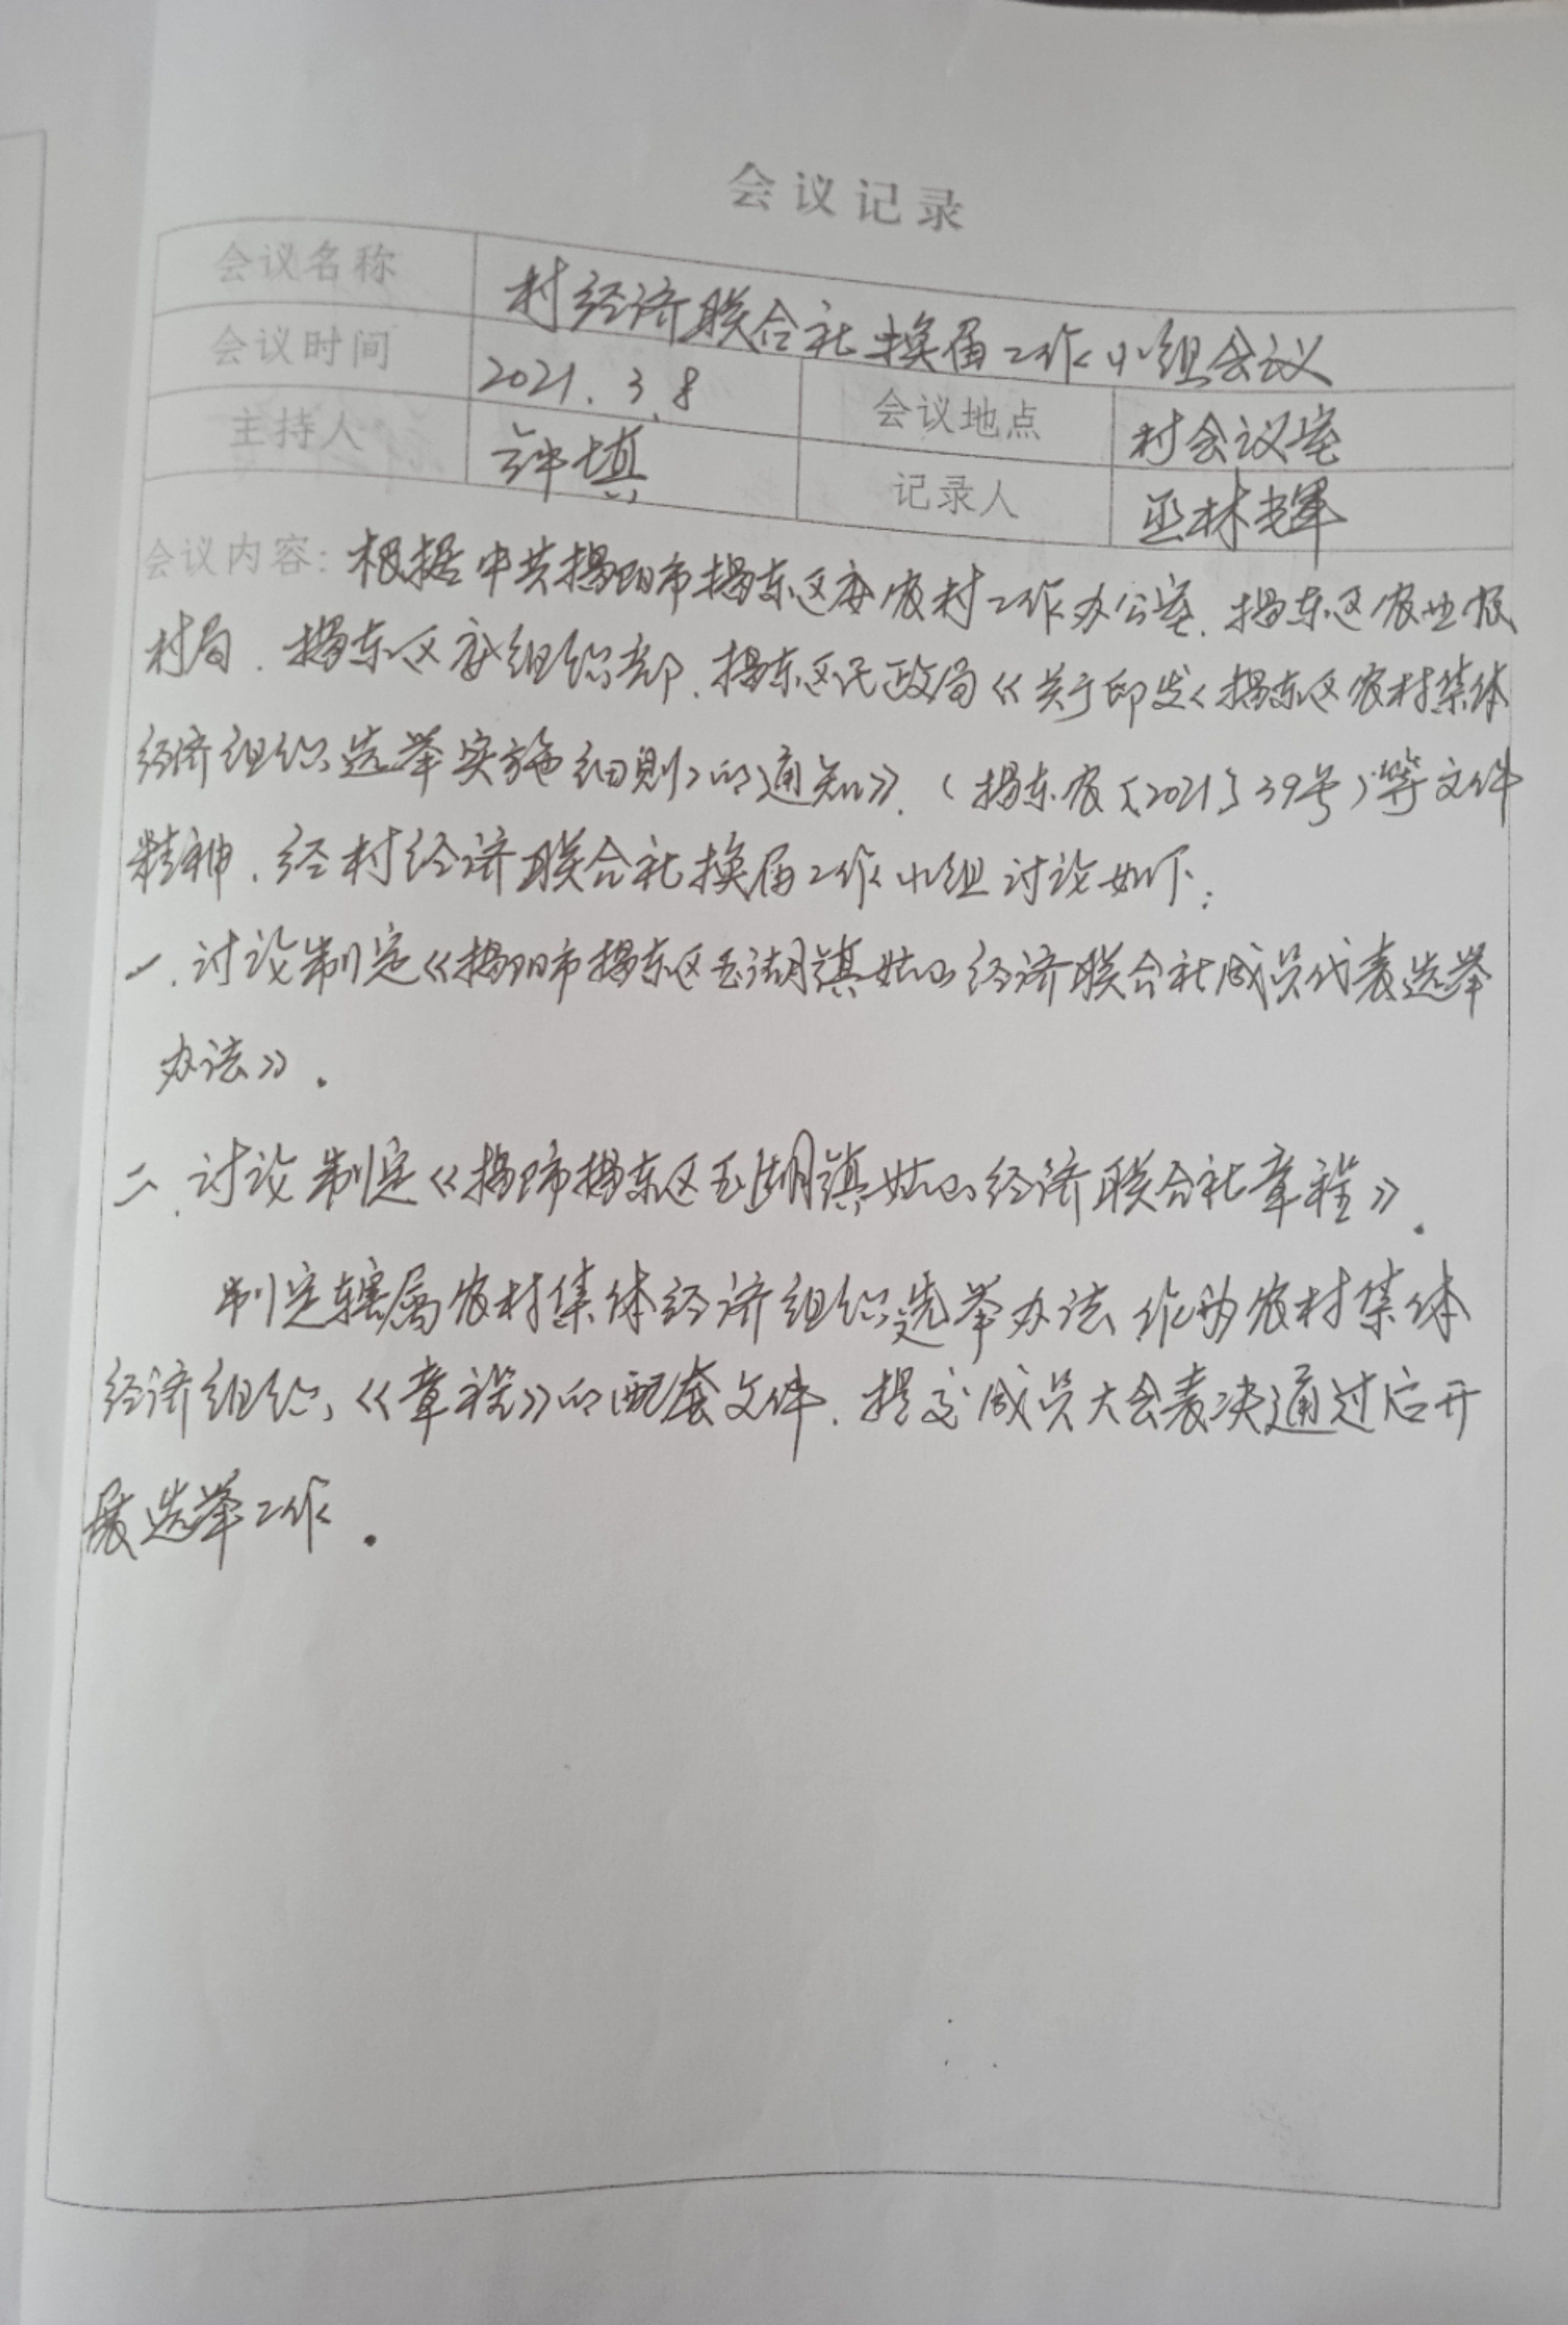 会议记录
会议名称 村经济联合社换届工作小组会议
会议时间 2021.3.8 会议地点 村会议室
主持人 记录人 林辉
会议内容:根据中共揭阳市揭东区委农村工作办公室、揭东区农业农
村局、揭东区委组织部、揭东区民政局《关于印发<揭东区农村集体
经济组织选举实施细则>的通知》、(揭东农〔2021〕39号)等文件
精神,经村经济联合社换届工作小组讨论如下:
一、讨论制定《揭阳市揭东区玉湖镇姑山经济联合社成员代表选举
办法》。
二、讨论制定《揭市揭东区玉湖镇姑山经济联合社章程》。
制定辖属农村集体经济组织选举办法,作为农村集体
经济组织《章程》的配套文件,提交成员大会表决通过后开
展选举工作。